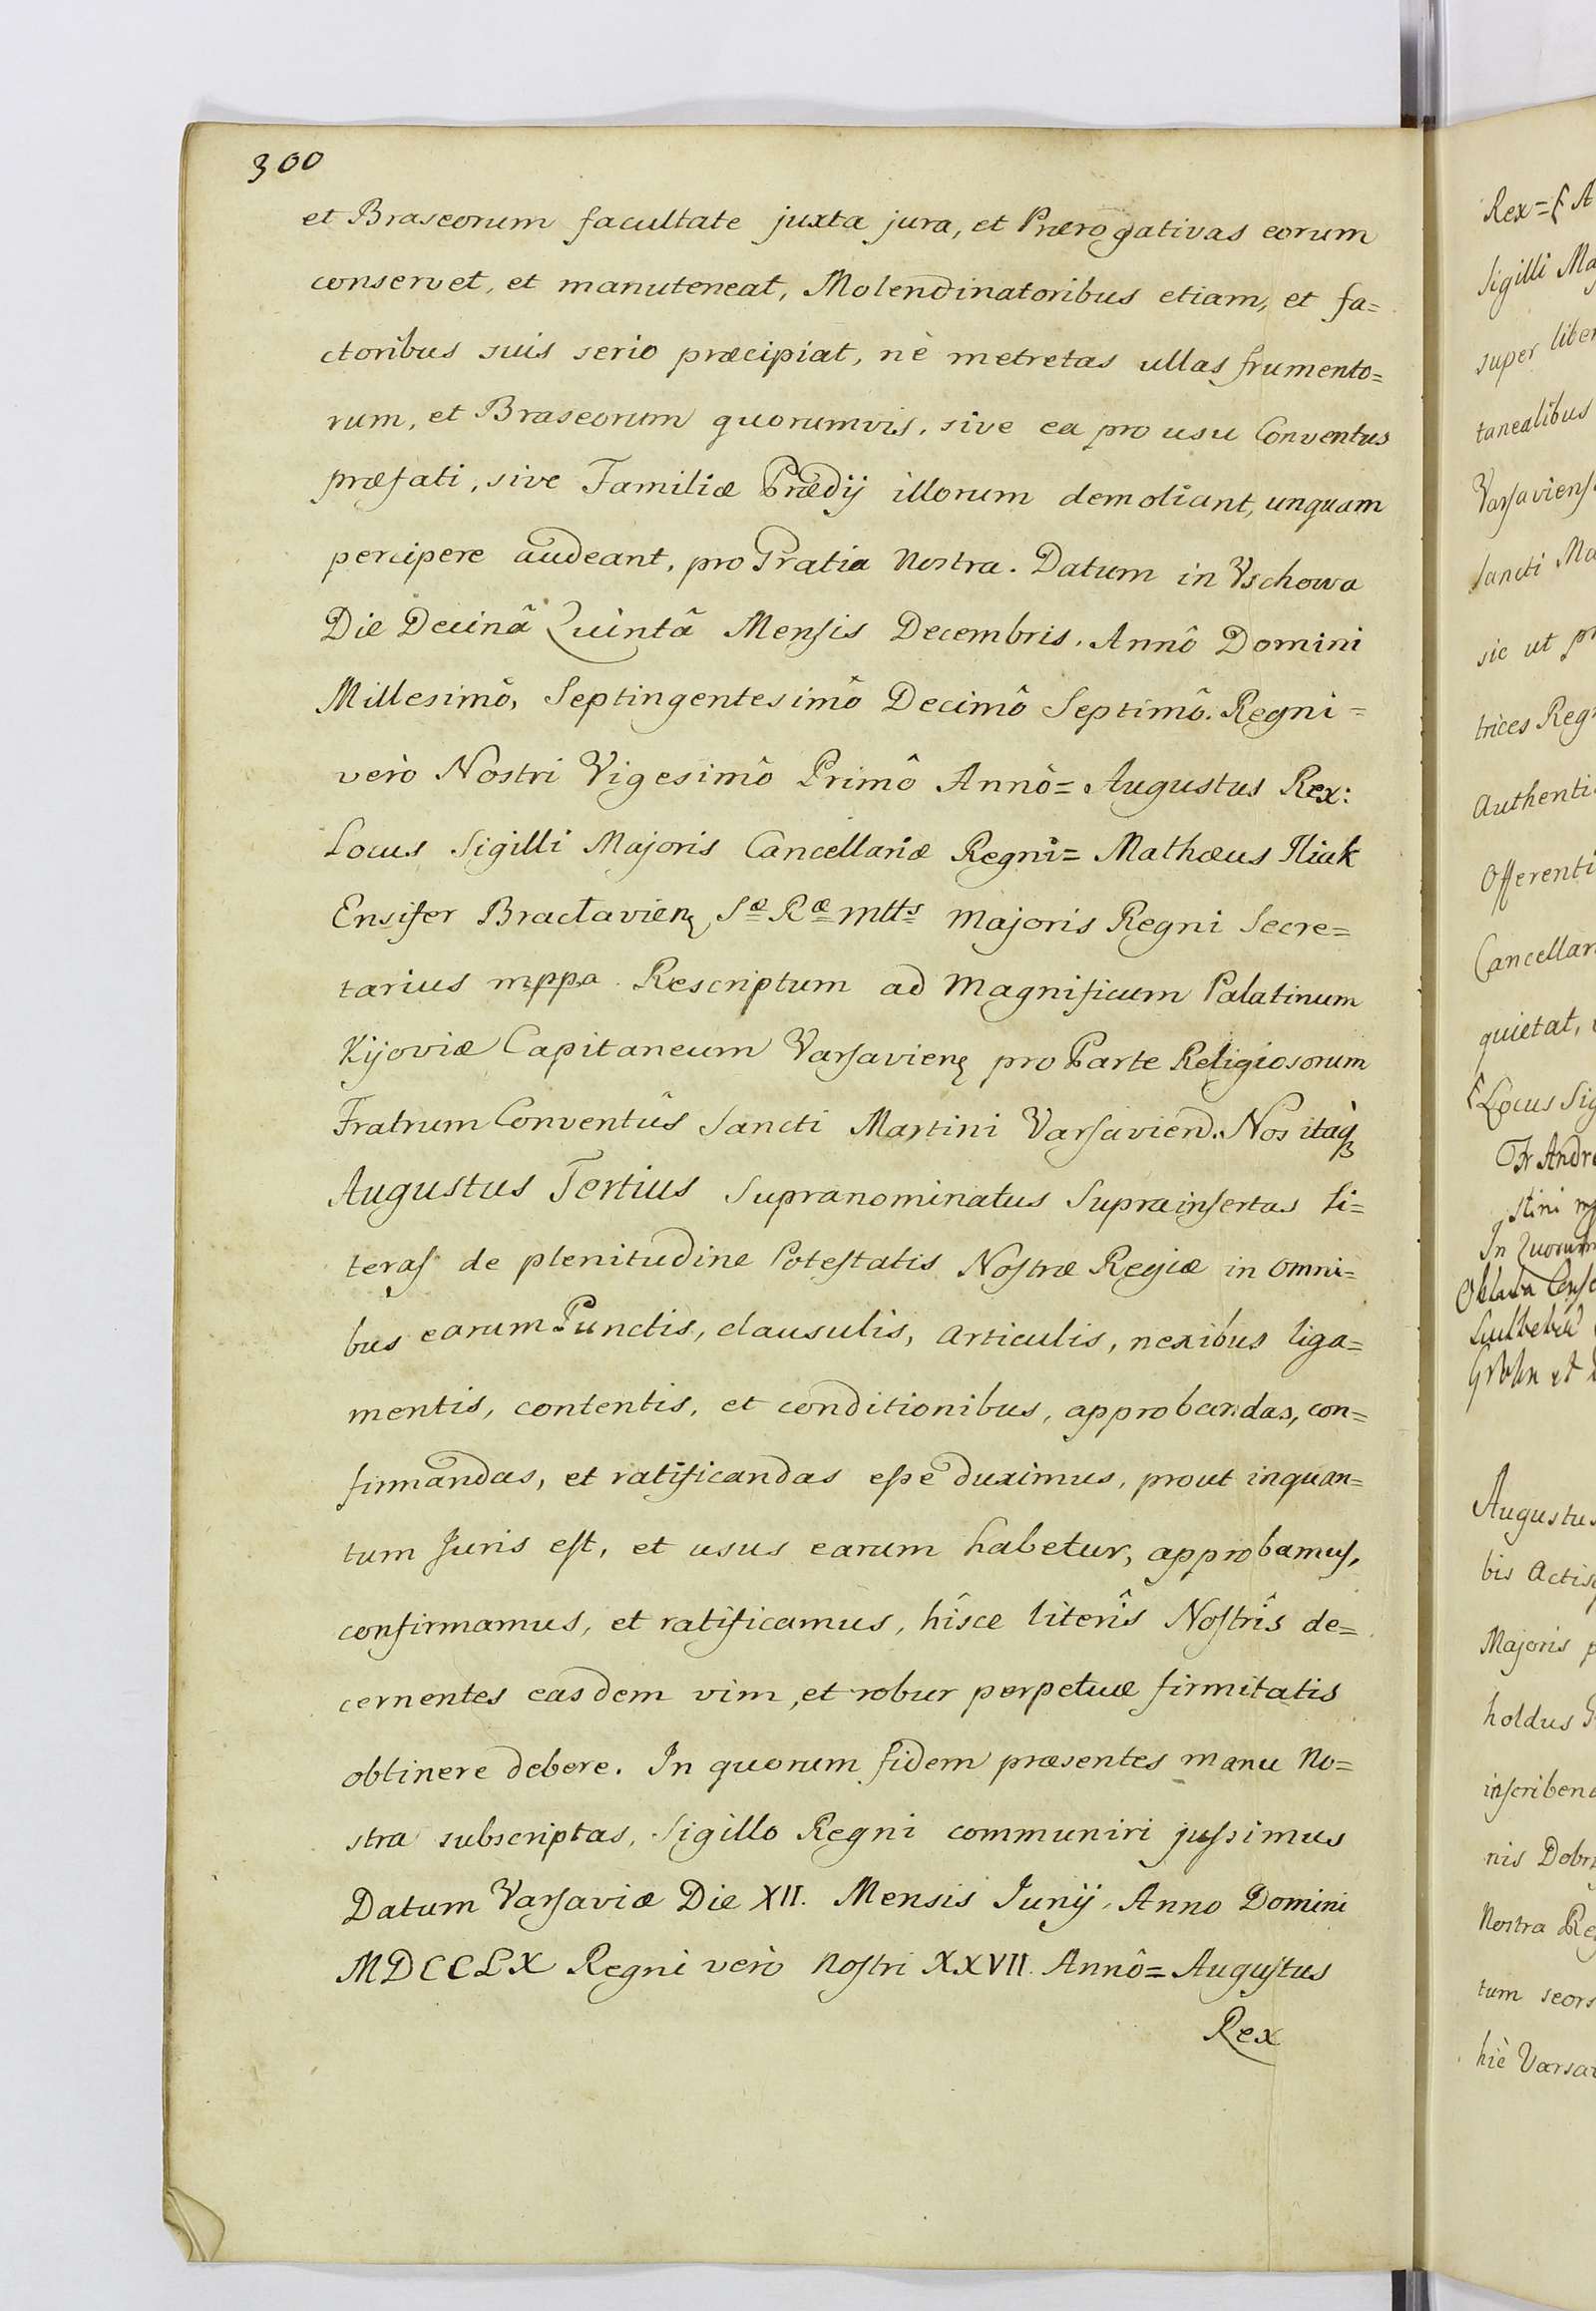 300
et Braseorum facultate juxta jura, et Prærogativas eorum
conservet, et manuteneat, Molendinatoribus etiam, et fa=
ctoribus suis serio præcipiat, nè metretas ullas frumento=
rum, et Braseorum quorumvis, sive ea pro usu Conventus
præfati, sive Familiæ Prædij illorum demoliant, unquam
percipere audeant, pro Gratia Nostra. Datum in Vschowa
Die Decinâ Quintâ Mensis Decembris. Annô Domini
Millesimô, Septingentesimô Decimô Septimô. Regni=
verò Nostri Vigesimô Primô Annô= Augustus Rex:
Locus Sigilli Majoris Cancellariæ Regni= Mathæus Iliak
Ensifer Bractavien Sæ Ræ Mtts Majoris Regni Secre=
tarius mppa. Rescriptum ad Magnificum Palatinum
Kijoviæ Capitaneum Varsavien pro Parte Religiosorum
Fratrum Conventûs Sancti Martini Varsavien. Nos itaq
Augustus Tertius Supranominatus Suprainsertas Li=
teras de plenitudine Potestatis Nostræ Regiæ in omni=
bus earum Punctis, clausulis, articulis, nexibus liga=
mentis, contentis, et conditionibus, approbandas, con=
firmandas, et ratificandas esse duximus, prout inquan=
tum Juris est, et usus earum habetur, approbamus,
confirmamus, et ratificamus, hîsce literîs Nostrîs de=
cernentes easdem vim, et robur perpetuæ firmitatis
obtinere debere. In quorum fidem præsentes manu No=
stra subscriptas, Sigillo Regni communiri jussimus
Datum Varsaviæ Die XII. Mensis Junij, Anno Domini
MDCCLX Regni verò Nostri XXVII. Annô= Augustus
Rex
Rex=
Sigilli
super
tanealibus
Sancti
sic ut
trices
Locus
Augustus
bis
Majoris
holdus
nis
Nostra
tum
hìc